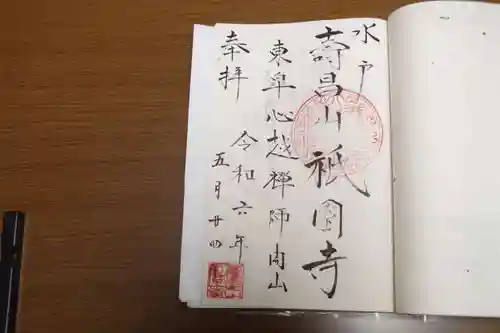 水戸
壽昌山祇園寺
東皐心越禅師開山
奉拝
令和六年
五月廿四